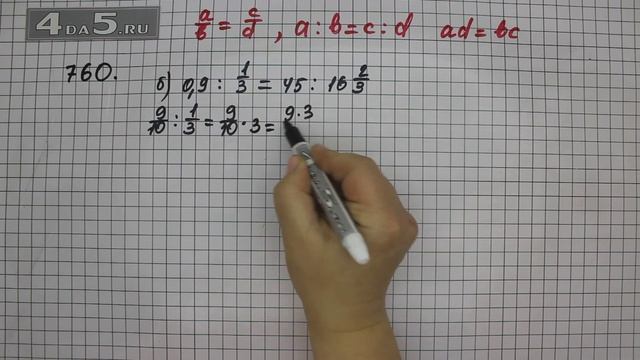 4DA5.RU
a/b = c/d , a : b = c : d ad = bc
760. б) 0,9 : 1/3 = 45 : 16 2/3
9/10 : 1/3 = 9/10 · 3 = 9·3